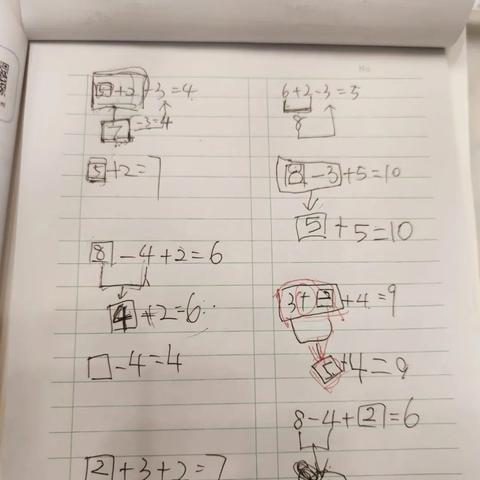 5+2-3=4
7-3=4
5+2=7
8-4+2=6
4+2=6
□-4=4
2+3+2=7
6+2-3=5
8
8-3+5=10
5+5=10
3+2+4=9
5+4=9
8-4+2=6